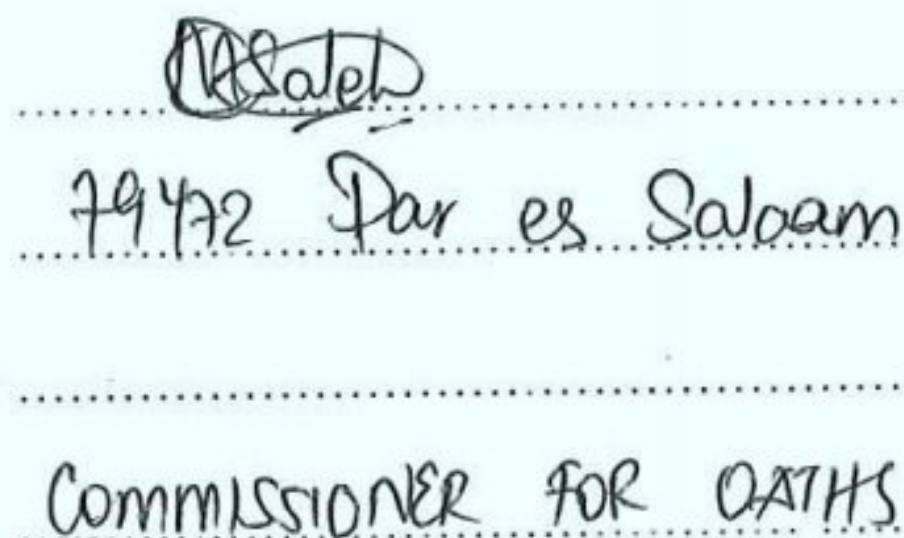 MSaleh
79472 Dar es Salaam
COMMISSIONER FOR OATHS